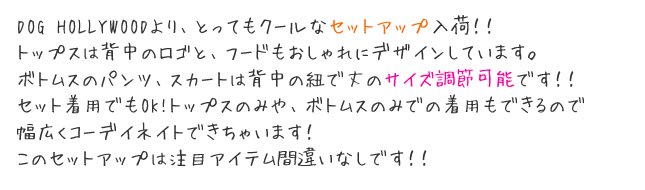 DOG HOLLYWOODより、とってもクールなセットアップ入荷!!
トップスは背中のロゴと、フードもおしゃれにデザインしています。
ボトムスのパンツ、スカートは背中の紐で丈のサイズ調節可能です!!
セット着用でもOK!トップスのみや、ボトムスのみでの着用もできるので
幅広くコーデイネイトできちゃいます!
このセットアップは注目アイテム間違いなしです!!